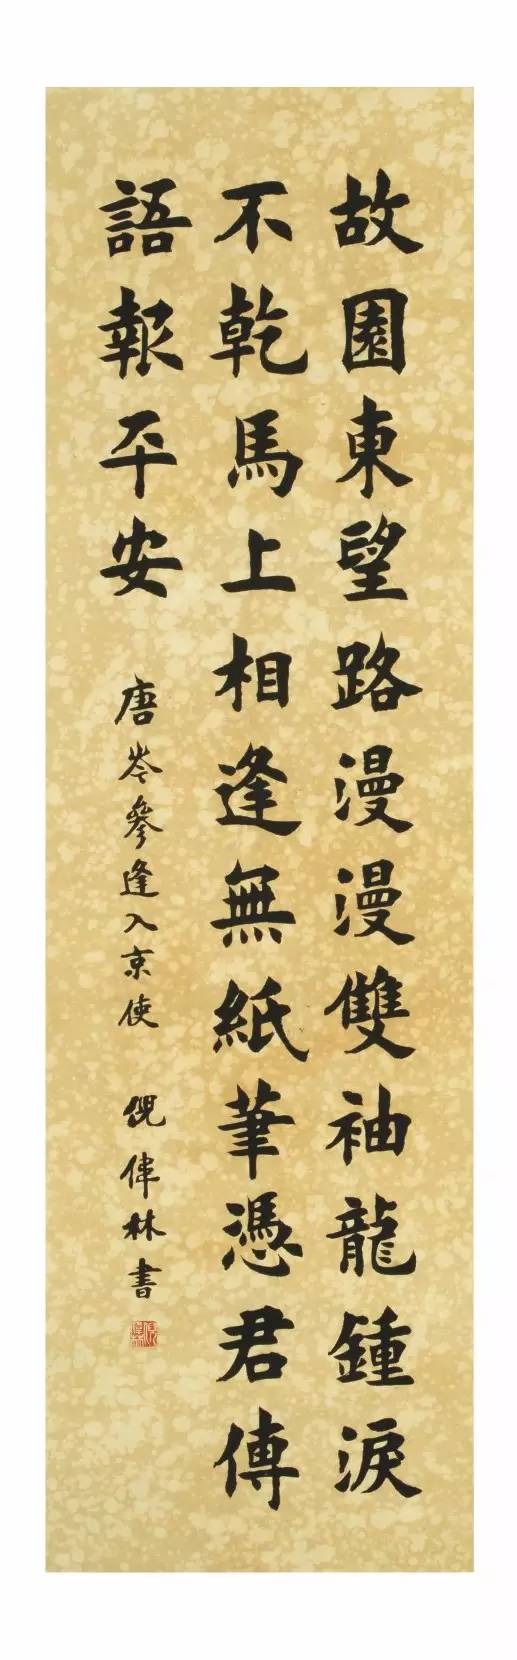 故園東望路漫漫雙袖龍鍾淚
不乾馬上相逢無紙筆憑君傳
語報平安
唐岑參逢入京使 倪偉林書